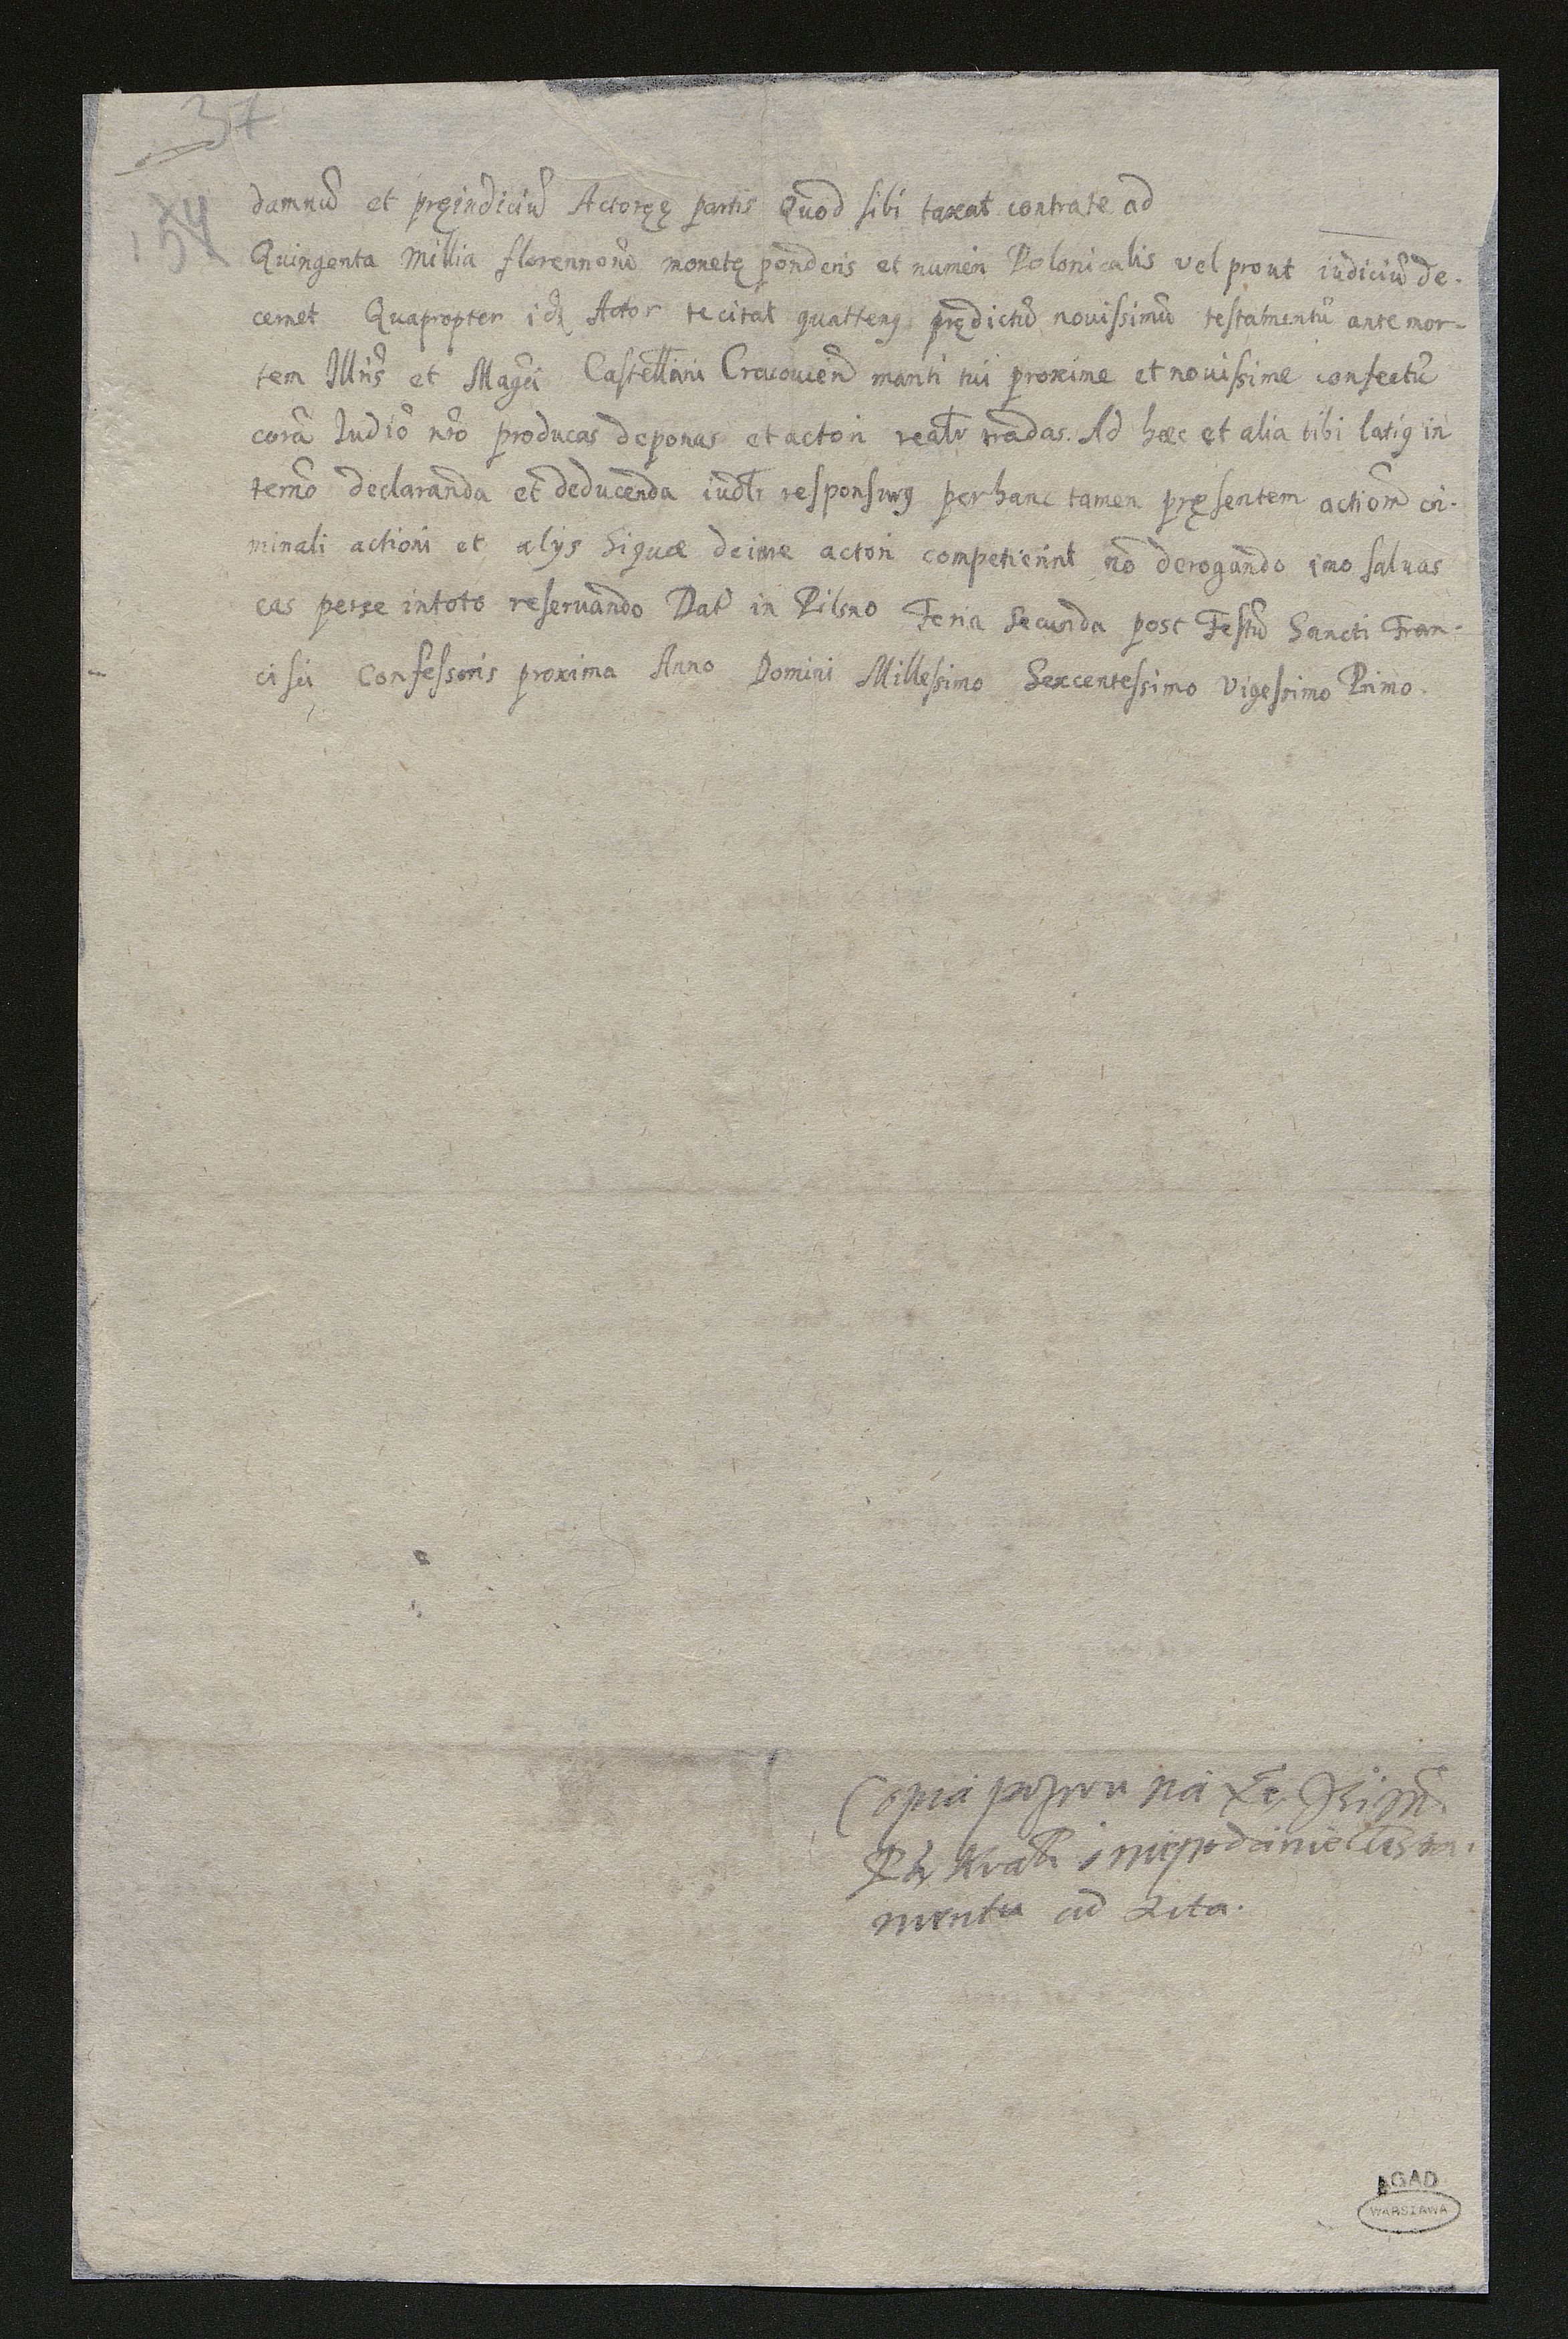 37
154
damnũ et pręiudiciũ Actoręę partis Quod sibi taxat contra te ad
Quingenta Millia florennorũ monetę ponderis et numeri Polonicalis vel prout iudiciũ de-
cernet Quapropter idẽ Actor te citat quatteng prędictũ nouissimũ testamentũ ante mor-
tem Illris et Magci Castellani Cracouien mariti tui proxime et nouissime confectũ
corã Iudio nro producas deponas et actori realr tradas. Ad hæc et alia tibi latig in
termo declaranda et deducenda iudlr responsurg per hanc tamen pręsentem actiom cri-
minali actioni et alys Siquæ de iure actori competierint nõ derogando imo saluas
eas per se in toto reseruando Dat in Pilsno Feria Secunda post Festũ Sancti Fran-
cisci Confessoris proxima Anno Domini Millessimo Sexcentessimo Vigessimo Primo.
Copia pozwu na
Krak o niepodanie testa-
mentu ad Acta.
AGAD
WARSZAWA